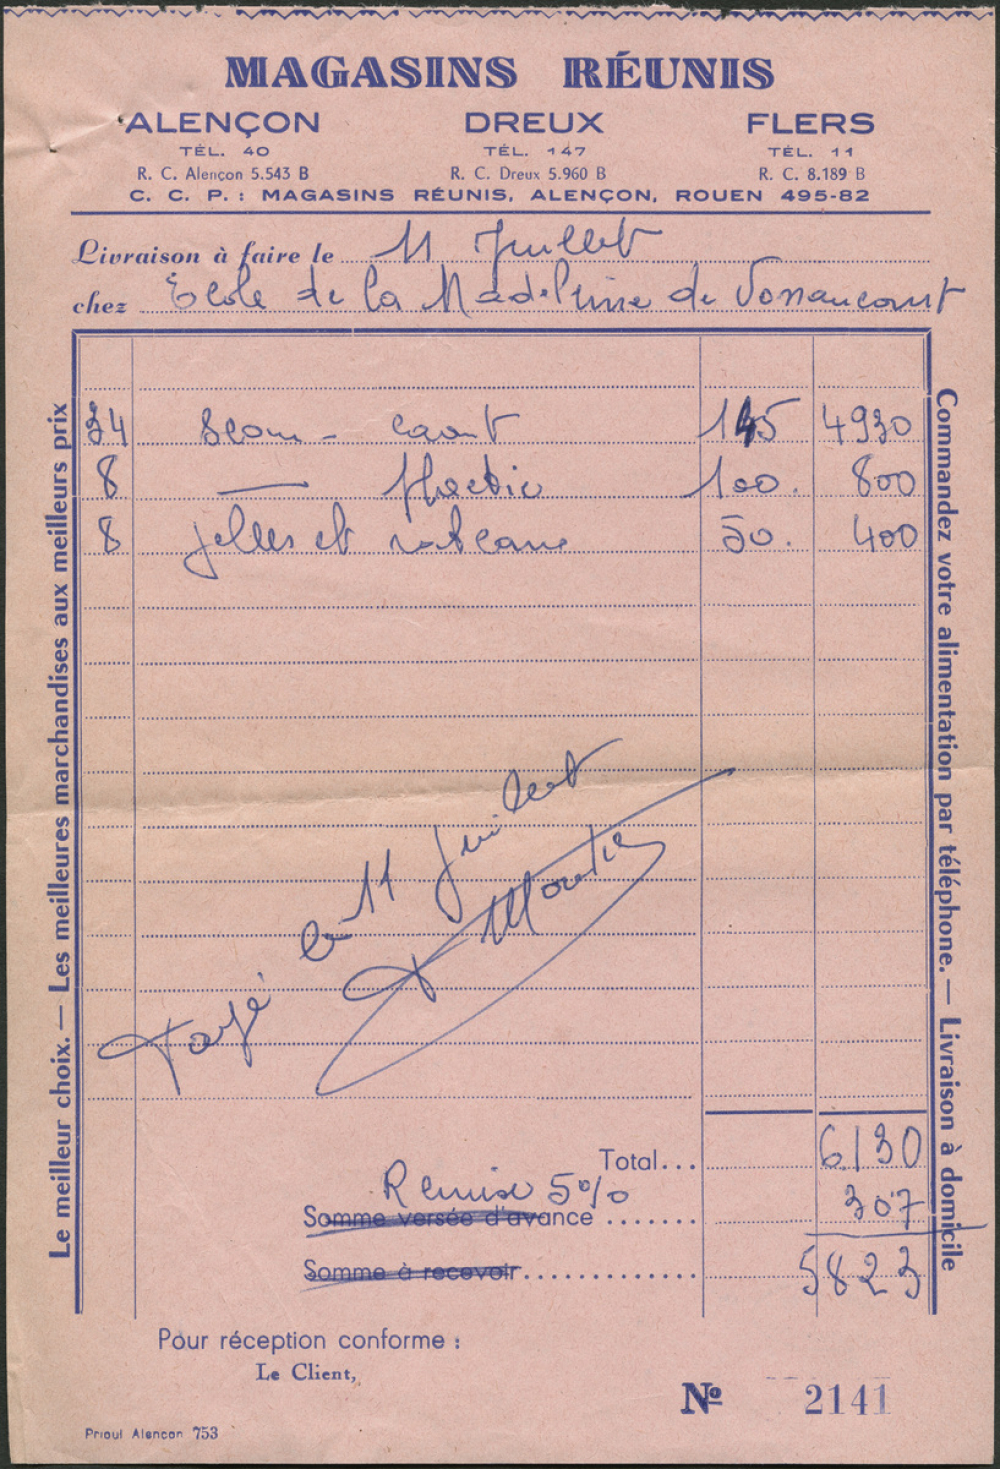 MAGASINS RÉUNIS
ALENÇON DREUX FLERS
TÉL. 40 TÉL. 147 TÉL. 11
R. C. Alençon 5.543 B R. C. Dreux 5.960 B R. C. 8.189 B
C. C. P. : MAGASINS RÉUNIS, ALENÇON, ROUEN 495-82
Livraison à faire le 11 Juillet
chez Ecole de la Madeleine de Vonnaucourt
Le meilleur choix. — Les meilleures marchandises aux meilleurs prix
34 caout 145 4930
8 — 100. 800
8 pelles et rateaux 50. 400
Payé le 11 Juillet
Total... 6130
Remise 5% 307
Somme versée d'avance .......
Somme à recevoir.............. 5823
Commandez votre alimentation par téléphone. — Livraison à domicile
Pour réception conforme :
Le Client,
Nº 2141
Prioul Alencon 753